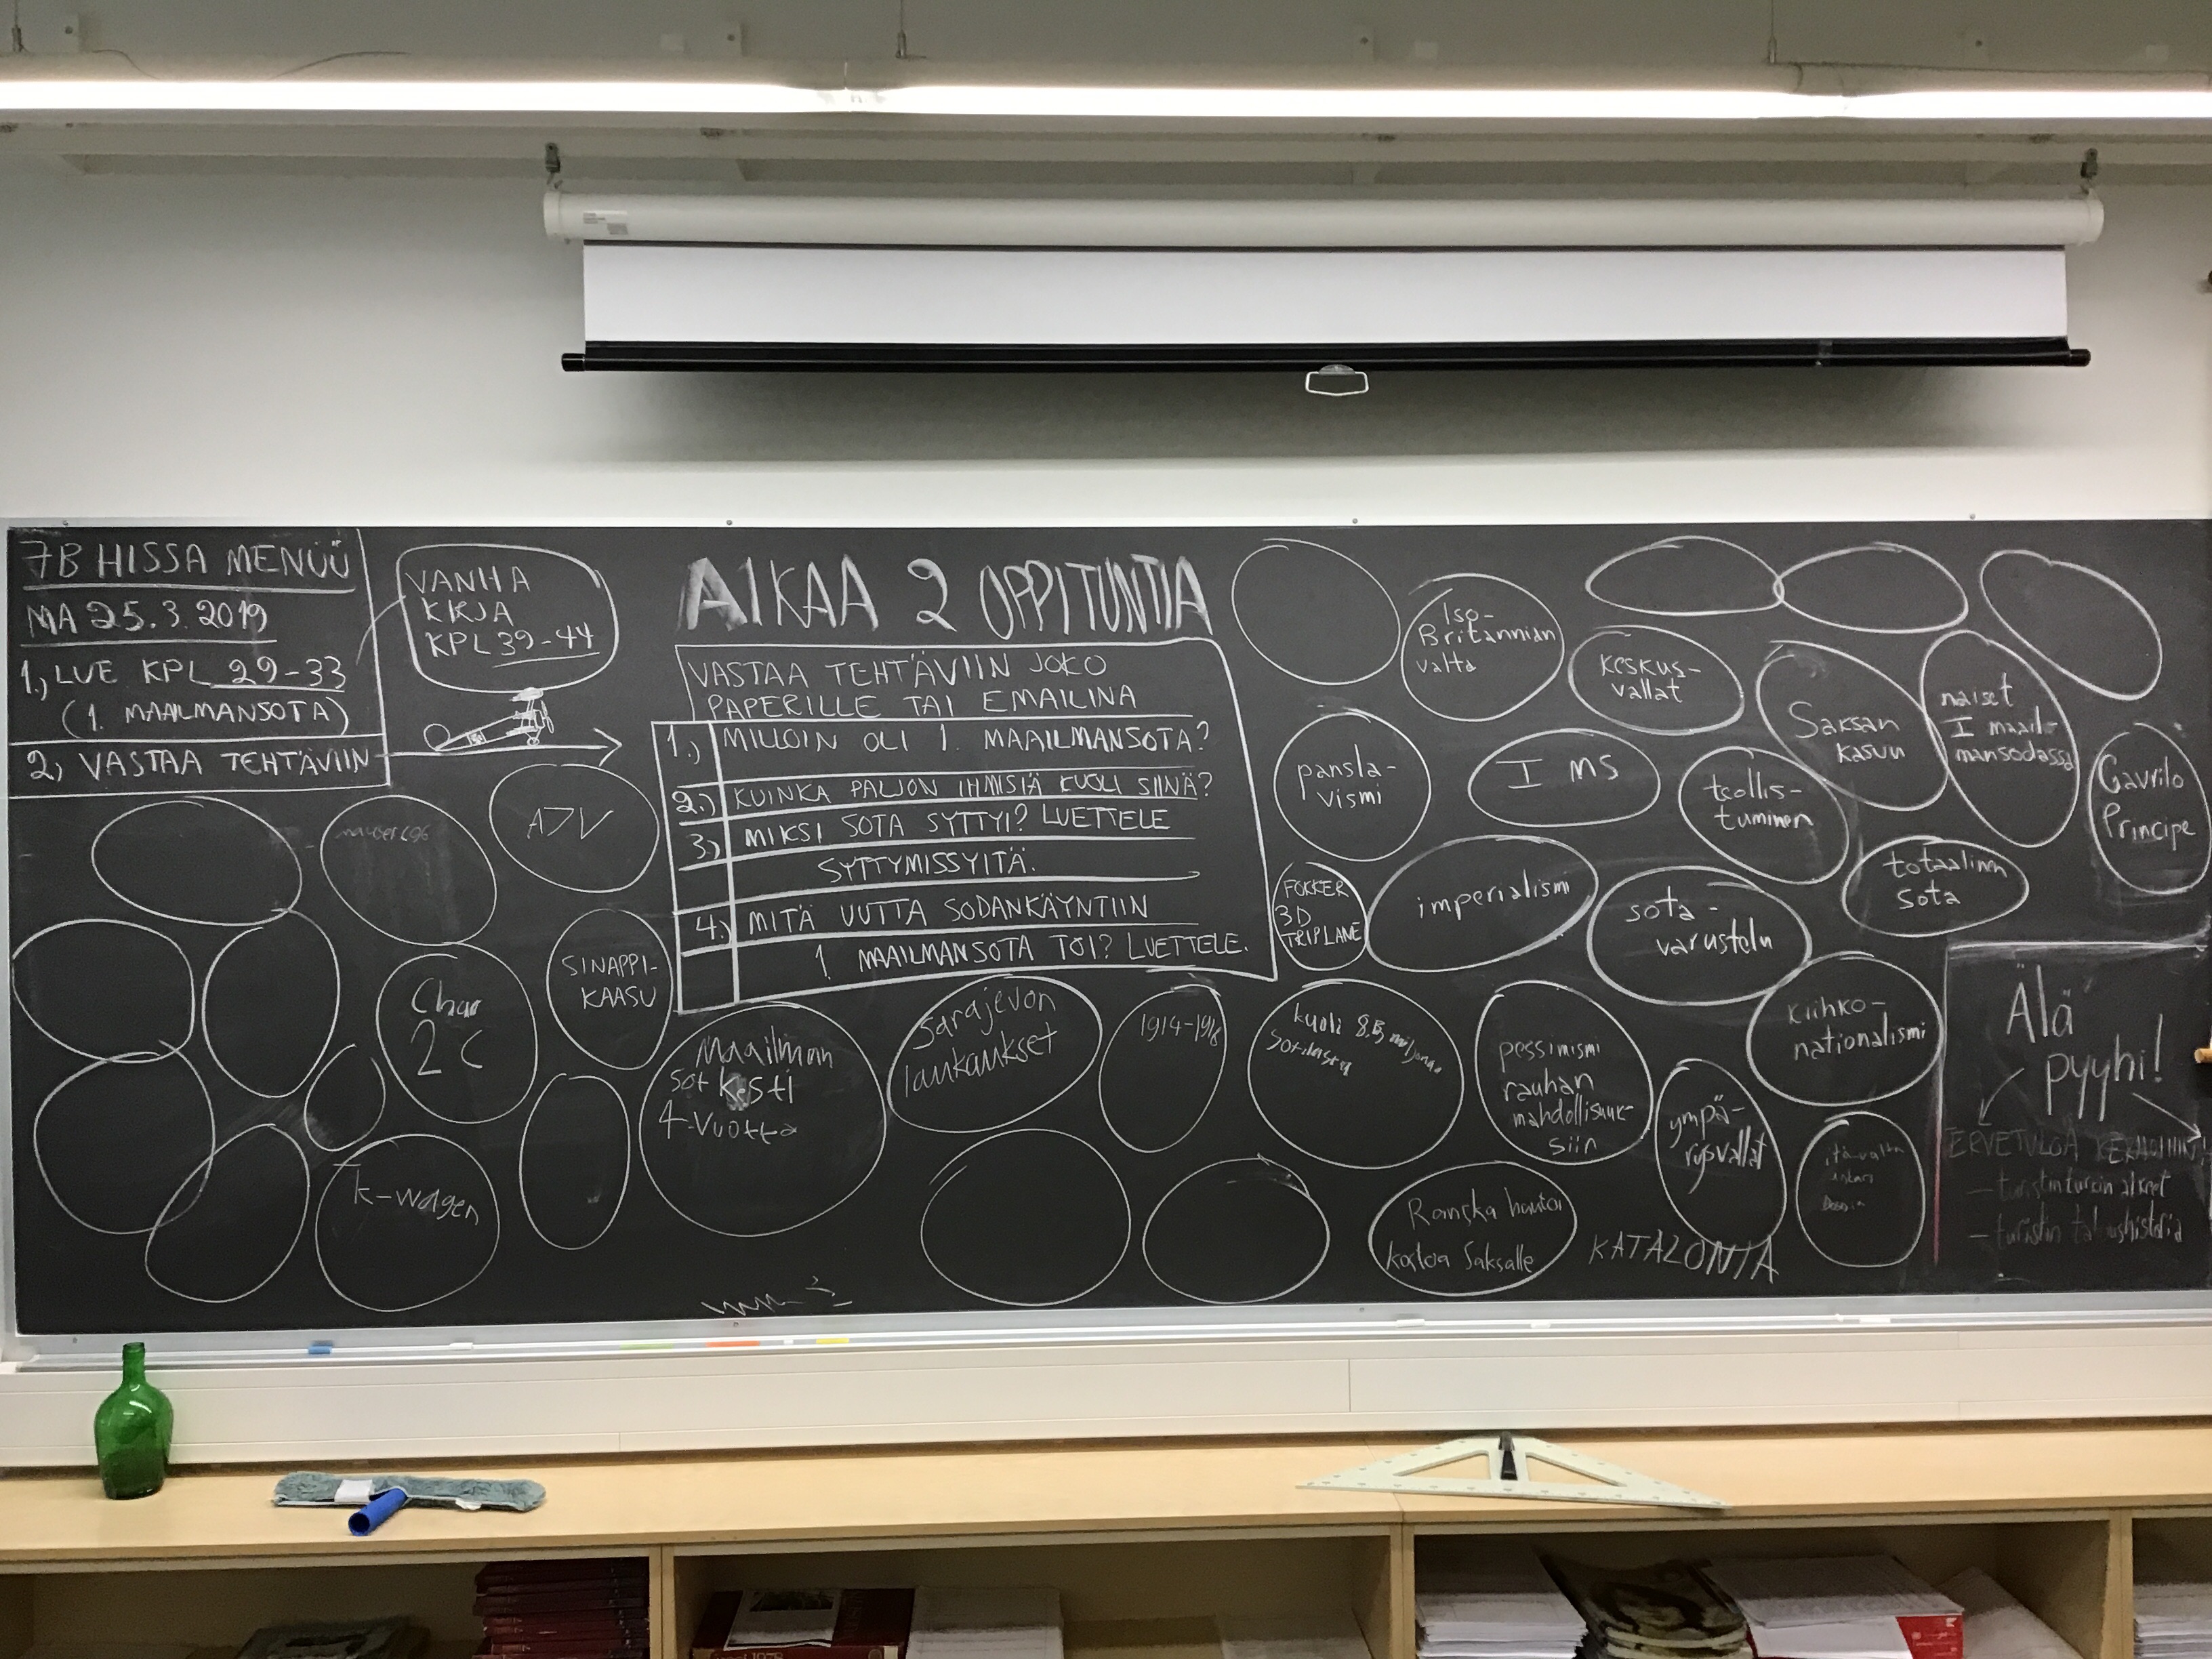 7B HISSA MENÜÜ
MA 25.3.2019
1., LUE KPL 29-33
(1. MAAILMANSOTA)
2, VASTAA TEHTÄVIIN
VANHA
KIRJA
KPL 39-44
AIKAA 2 OPPITUNTIA
VASTAA TEHTÄVIIN JOKO
PAPERILLE TAI EMAILINA
1.) MILLOIN OLI 1. MAAILMANSOTA?
2.) KUINKA PALJON IHMISIÄ KUOLI SIINÄ?
3.) MIKSI SOTA SYTTYI? LUETTELE
SYTTYMISSYITÄ.
4.) MITÄ UUTTA SODANKÄYNTIIN
1. MAAILMANSOTA TOI? LUETTELE.
mauser c96
A7V
SINAPPI-
KAASU
Char
2C
K-wagen
Maailman
sot kesti
4-Vuotta
Sarajevon
laukaukset
1914-1918
kuoli 8,5 miljoonaa
sotilasta
pessimismi
rauhan
mahdollisuuk-
siin
Ranska
kostoa Saksalle
KATALONIA
ympä-
rysvallat
kiihko-
nationalismi
Iso-
Britannian
valta
keskus-
vallat
Saksan
kasvu
naiset
I maail-
mansodassa
Gavrilo
Principe
pansla-
vismi
I MS
teollis-
tuminen
totaalinen
sota
FOKKER
3D
TRIPLANE
imperialismi
sota-
varustelu
Älä
pyyhi!